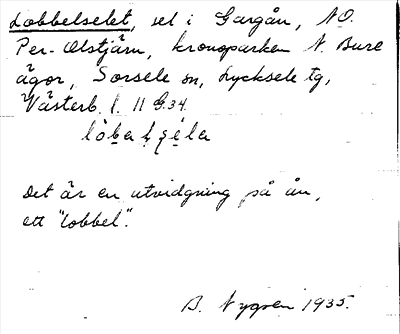 Lobbelselet, sel i Gargån, N.O.
Per-Olstjärn, kronoparken N. Bure
ägor, Sorsele sn, Lycksele tg,
Västerb. l. 11 G.34.
Det är en utvidgning på ån,
ett "lobbel".
B. Nygren 1935.